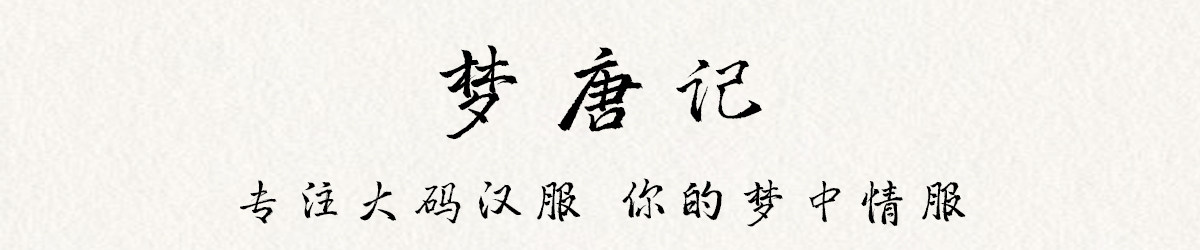 梦唐记
专注大码汉服 你的梦中情服